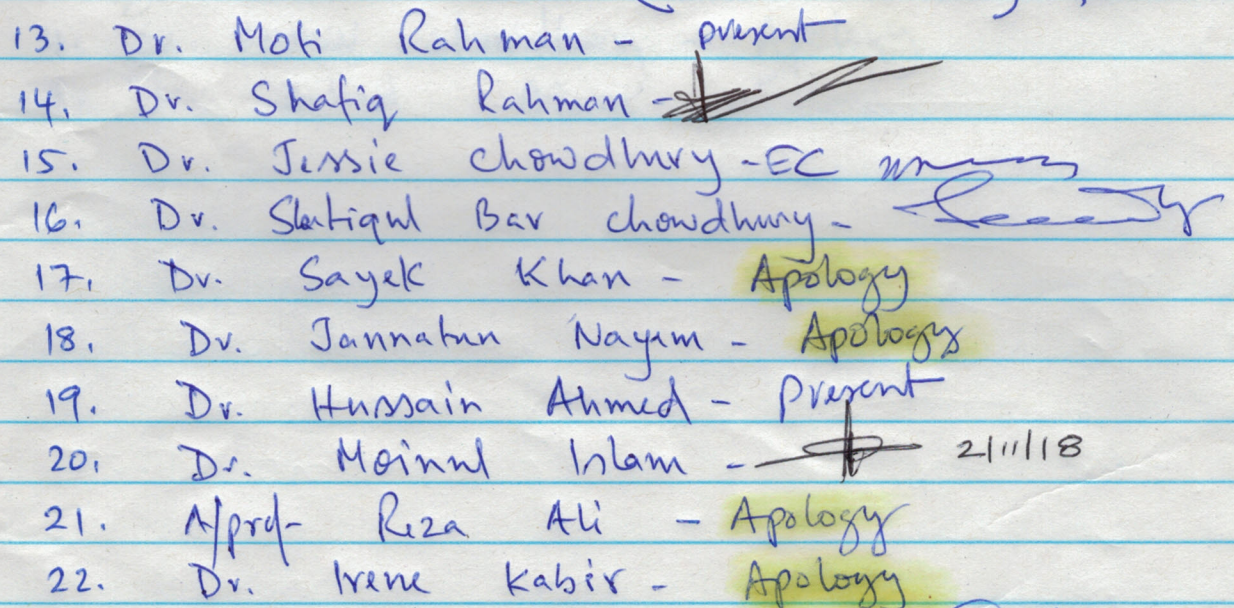 13. Dr. Moti Rahman - present
14. Dr. Shafiq Rahman -
15. Dr. Jessie Chowdhury - EC
16. Dr. Shatiqul Bar Chowdhury -
17. Dr. Sayek Khan - Apology
18. Dr. Jannatun Nayem - Apology
19. Dr. Hussain Ahmed - Present
20. Dr. Moinul Islam - 2/11/18
21. A/prof Reza Ali - Apology
22. Dr. Irene Kabir - Apology